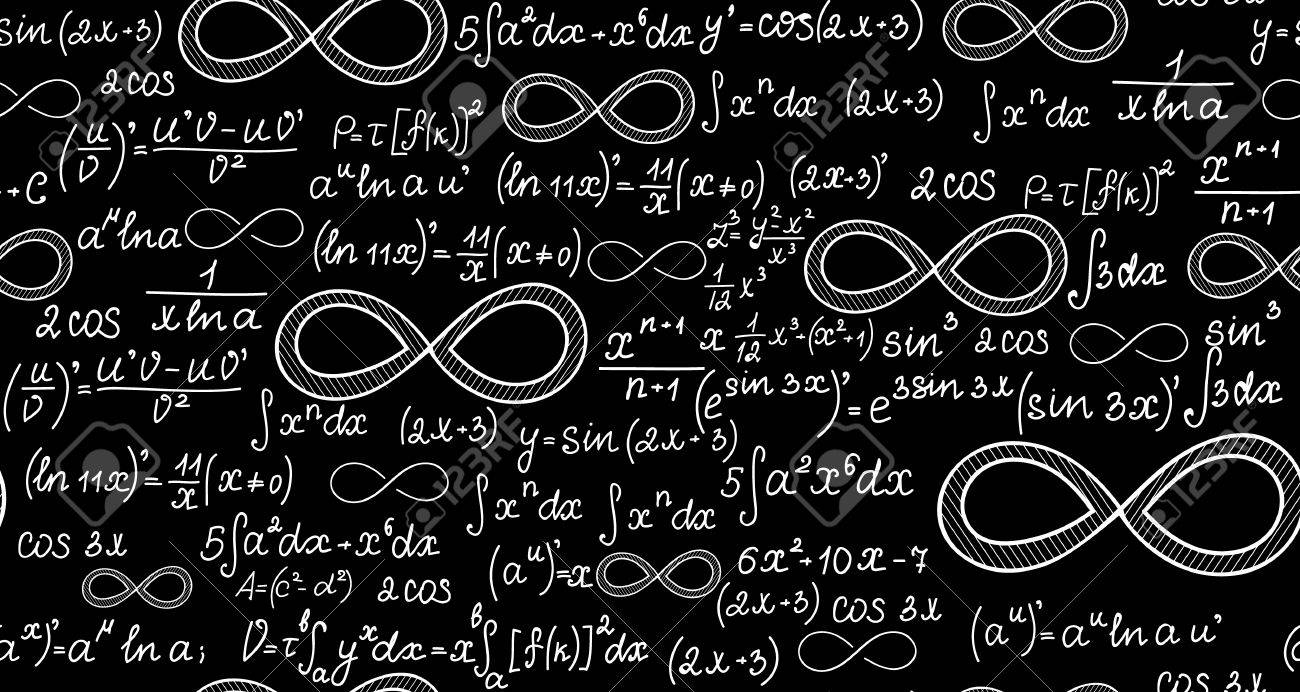 sin(2x+3)
5∫a²dx+x⁶dx
y'=cos(2x+3)
y=
2cos
∫xⁿdx
(2x+3)
∫xⁿdx
1/(x ln a)
(u/v)'=(u'v-uv')/v²
ρ=τ[f(κ)]²
+C
aᵘ ln a u'
(ln 11x)'=11/x(x≠0)
(2x+3)'
2cos
ρ=τ[f(κ)]²
xⁿ⁺¹/(n+1)
aᵘlna
(ln 11x)'=11/x(x≠0)
z³=(y²-x²)/x³
1/12 x³
∫3dx
2cos
1/(x ln a)
xⁿ⁺¹/(n+1)
x 1/12 x³+(x²+1)
sin³
2cos
sin³
(u/v)'=(u'v-uv')/v²
∫xⁿdx
(2x+3)
(e^(sin 3x))'=e^(3sin 3x)
(sin 3x)'
∫3dx
y=sin(2x+3)
(ln 11x)'=11/x(x≠0)
∫xⁿdx
∫xⁿdx
5∫a²x⁶dx
cos 3x
5∫a²dx+x⁶dx
(aᵘ)'=x
6x²+10x-7
A=(c²-d²)
2cos
(2x+3)
cos 3x
(aˣ)'=aᵘ ln a;
V=τ∫ₐᵇyˣdx=x∫ₐᵇ[f(κ)]²dx
(2x+3)
(aᵘ)'=aᵘ ln a u'
cos 3x
123RF